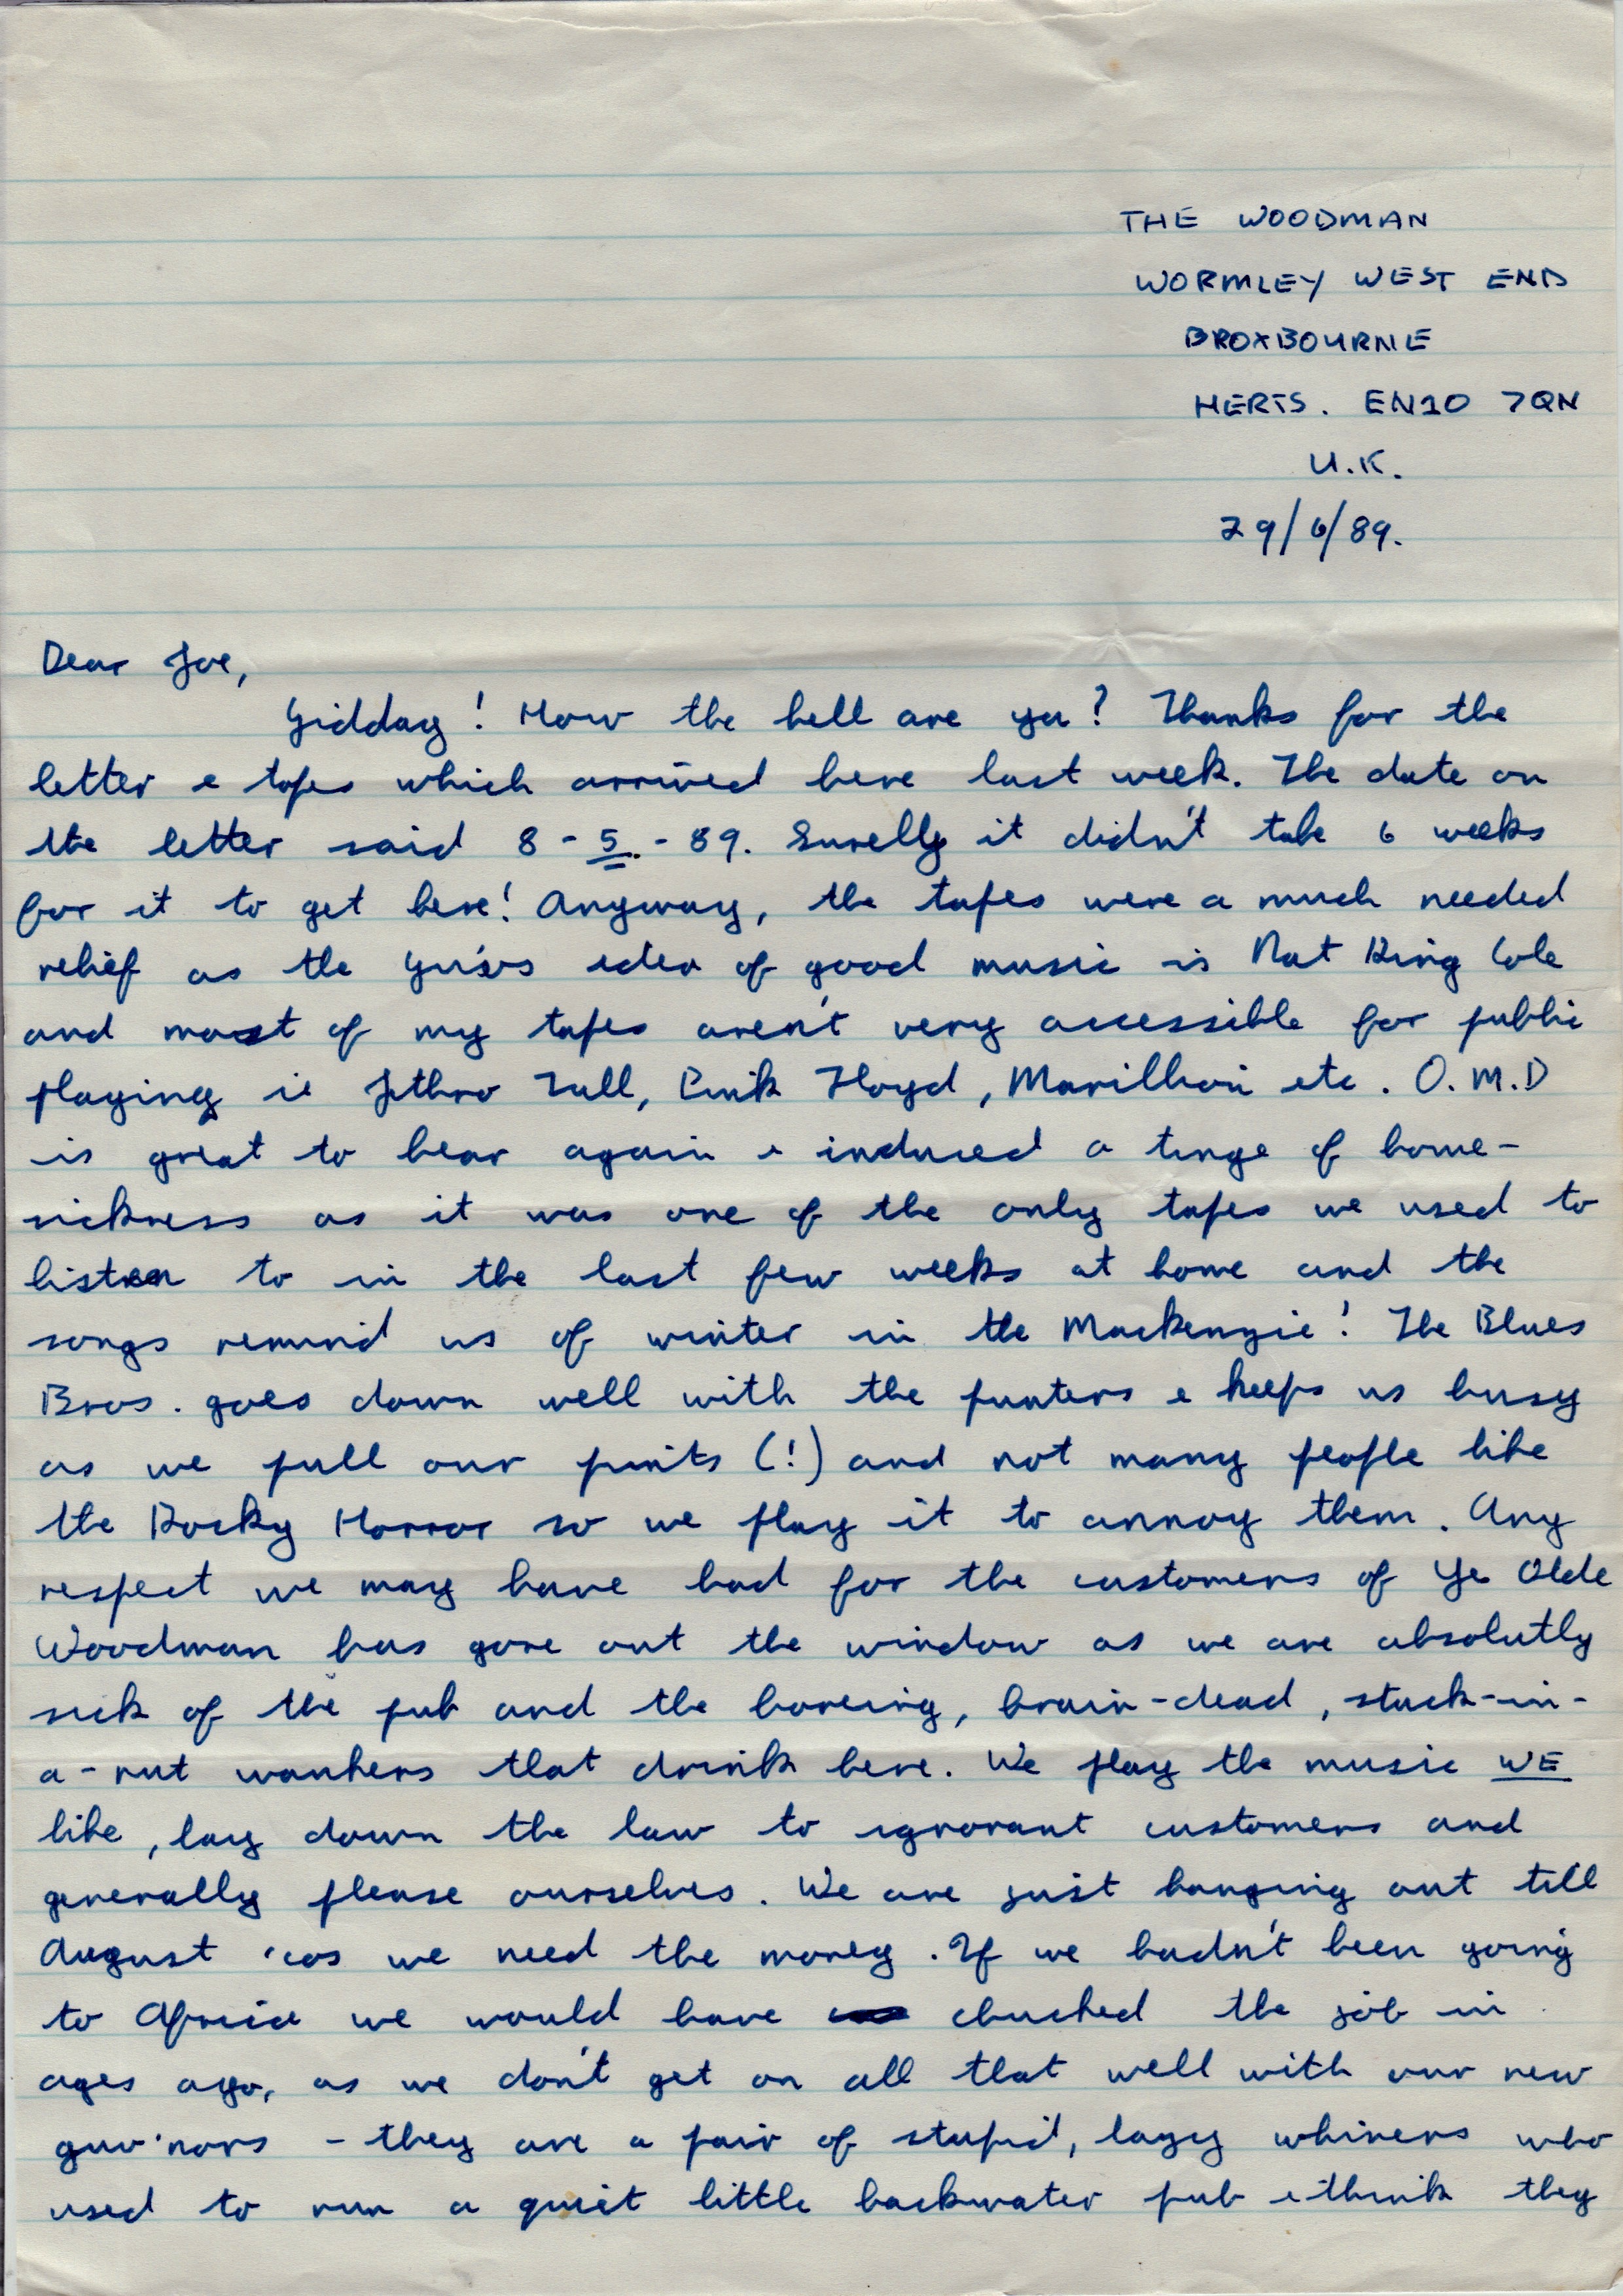 THE WOODMAN
WORMLEY WEST END
BROXBOURNE
HERTS. EN10 7QN
U.K.
29/6/89.
Dear Joe,
Gidday! How the hell are ya? Thanks for the
letter & tapes which arrived here last week. The date on
the letter said 8-5.-89. Surelly it didn't take 6 weeks
for it to get here! Anyway, the tapes were a much needed
relief as the guv's idea of good music is Nat King Cole
and most of my tapes aren't very accessible for public
playing ie Jethro Tull, Pink Floyd, Marillion etc. O.M.D
is great to hear again & induced a tinge of home-
sickness as it was one of the only tapes we used to
listen to in the last few weeks at home and the
songs remind us of winter in the Mackenzie! The Blues
Bros. goes down well with the punters & keeps us busy
as we pull our pints (!) and not many people like
the Rocky Horror so we play it to annoy them. Any
respect we may have had for the customers of Ye Olde
Woodman has gone out the window as we are absolutly
sick of the pub and the boreing, brain-dead, stuck-in-
a-rut wankers that drink here. We play the music WE
like, lay down the law to ignorant customers and
generally please ourselves. We are just hanging out till
August 'cos we need the money. If we hadn't been going
to Africa we would have chucked the job in
ages ago, as we don't get on all that well with our new
guv'nors - they are a pair of stupid, lazy whiners who
used to run a quiet little backwater pub & think they